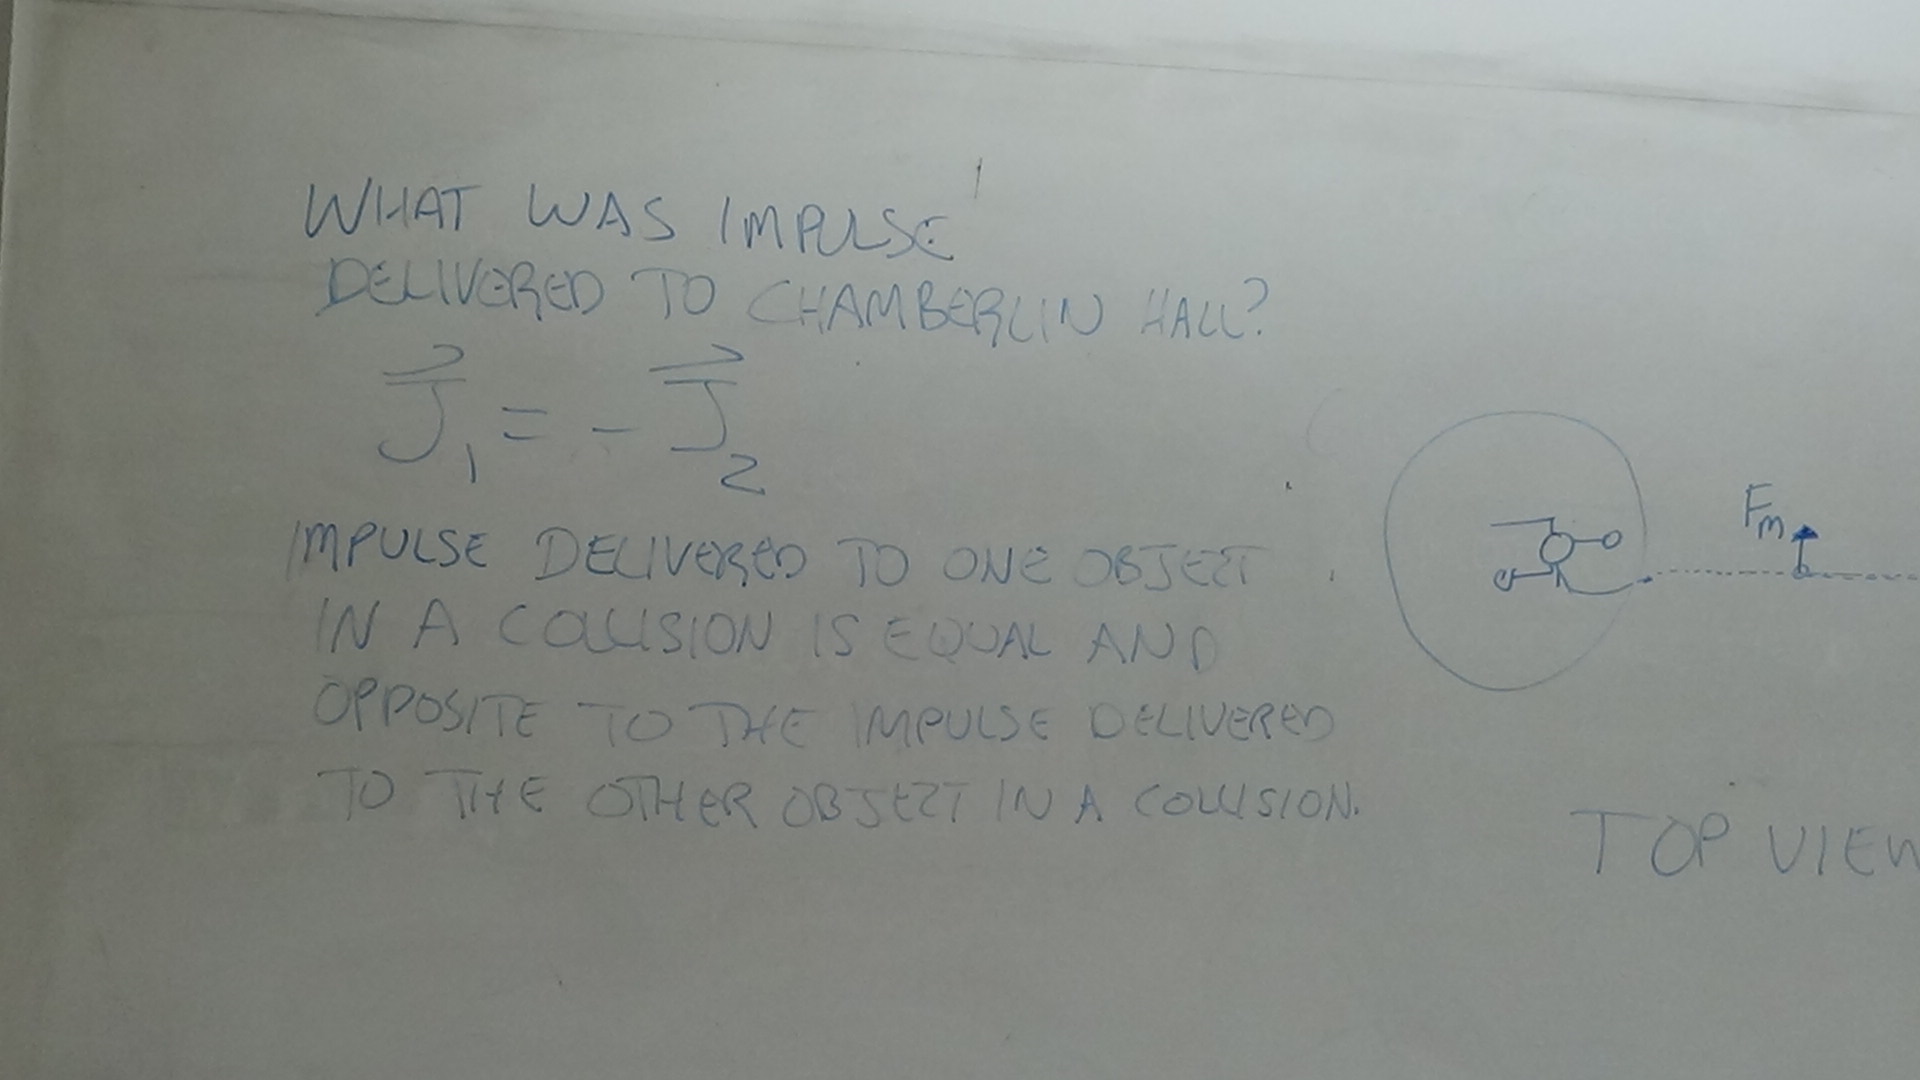 WHAT WAS IMPULSE
DELIVERED TO CHAMBERLIN HALL?
J⃗₁ = - J⃗₂
IMPULSE DELIVERED TO ONE OBJECT
IN A COLLISION IS EQUAL AND
OPPOSITE TO THE IMPULSE DELIVERED
TO THE OTHER OBJECT IN A COLLISION.
Fm
TOP VIEW